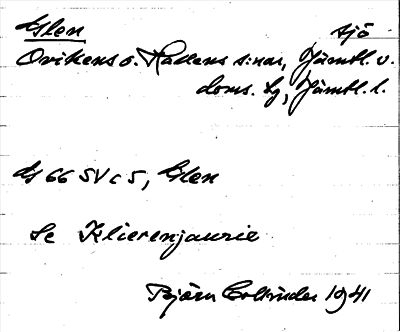 Glen sjö
Ovikens o. Hallens s:nar, Jämtl. v.
doms. lg, Jämtl. l.
G 66 SV c 5, Glen
Se Klierenjaurie
Björn Collinder 1941